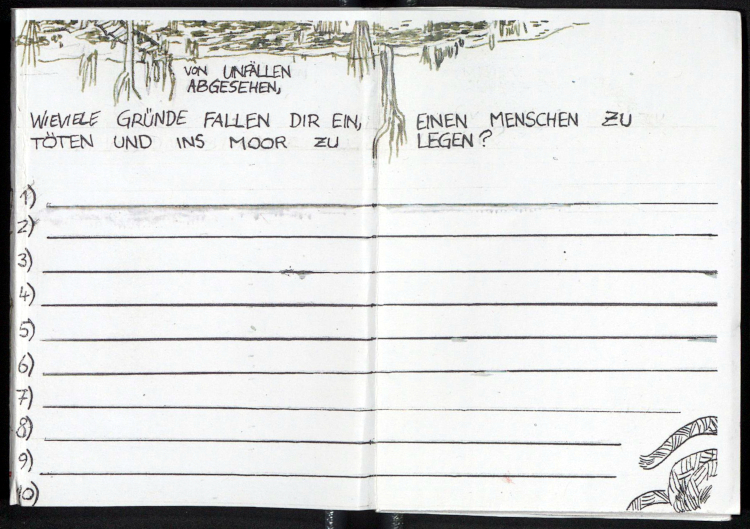 VON UNFÄLLEN
ABGESEHEN,
WIEVIELE GRÜNDE FALLEN DIR EIN, EINEN MENSCHEN ZU
TÖTEN UND INS MOOR ZU LEGEN?
1)
2)
3)
4)
5)
6)
7)
8)
9)
10)